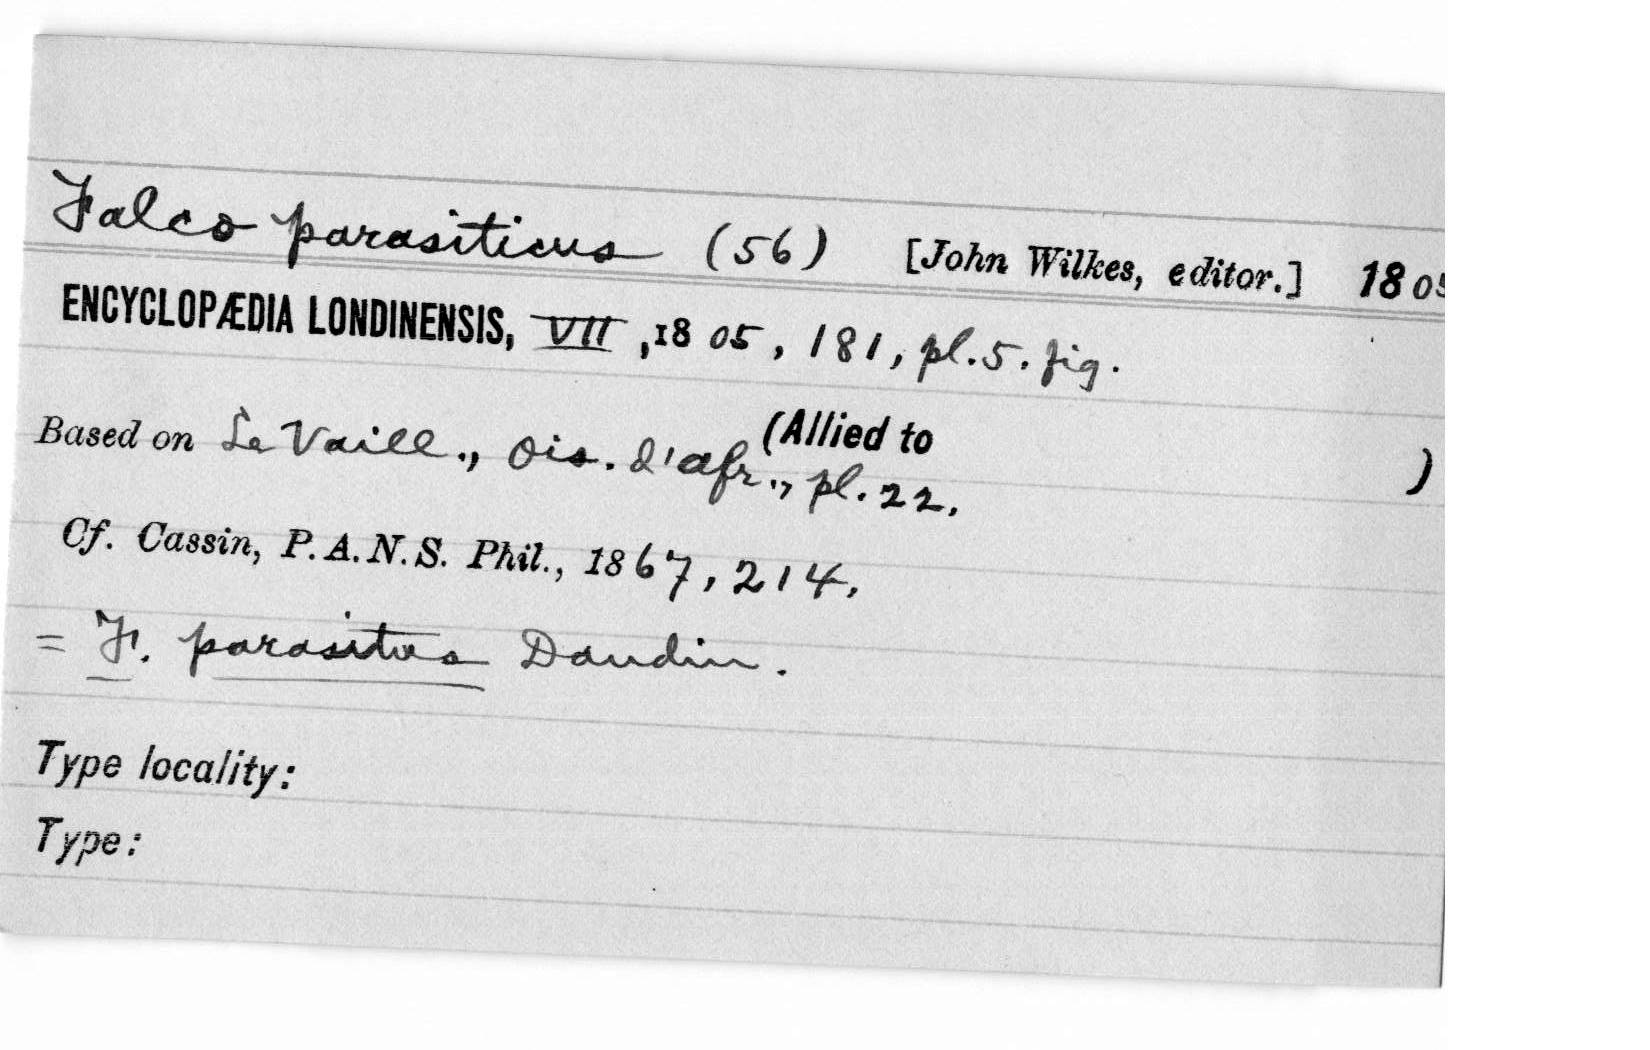 Falco parasiticus (56) [John Wilkes, editor.] 1805
ENCYCLOPÆDIA LONDINENSIS, VII, 1805, 181, pl.5. fig.
(Allied to )
Based on Le Vaill., Ois. d'afr., pl. 22.
Cf. Cassin, P. A. N. S. Phil., 1867, 214.
= F. parasitus Daudin.
Type locality:
Type: